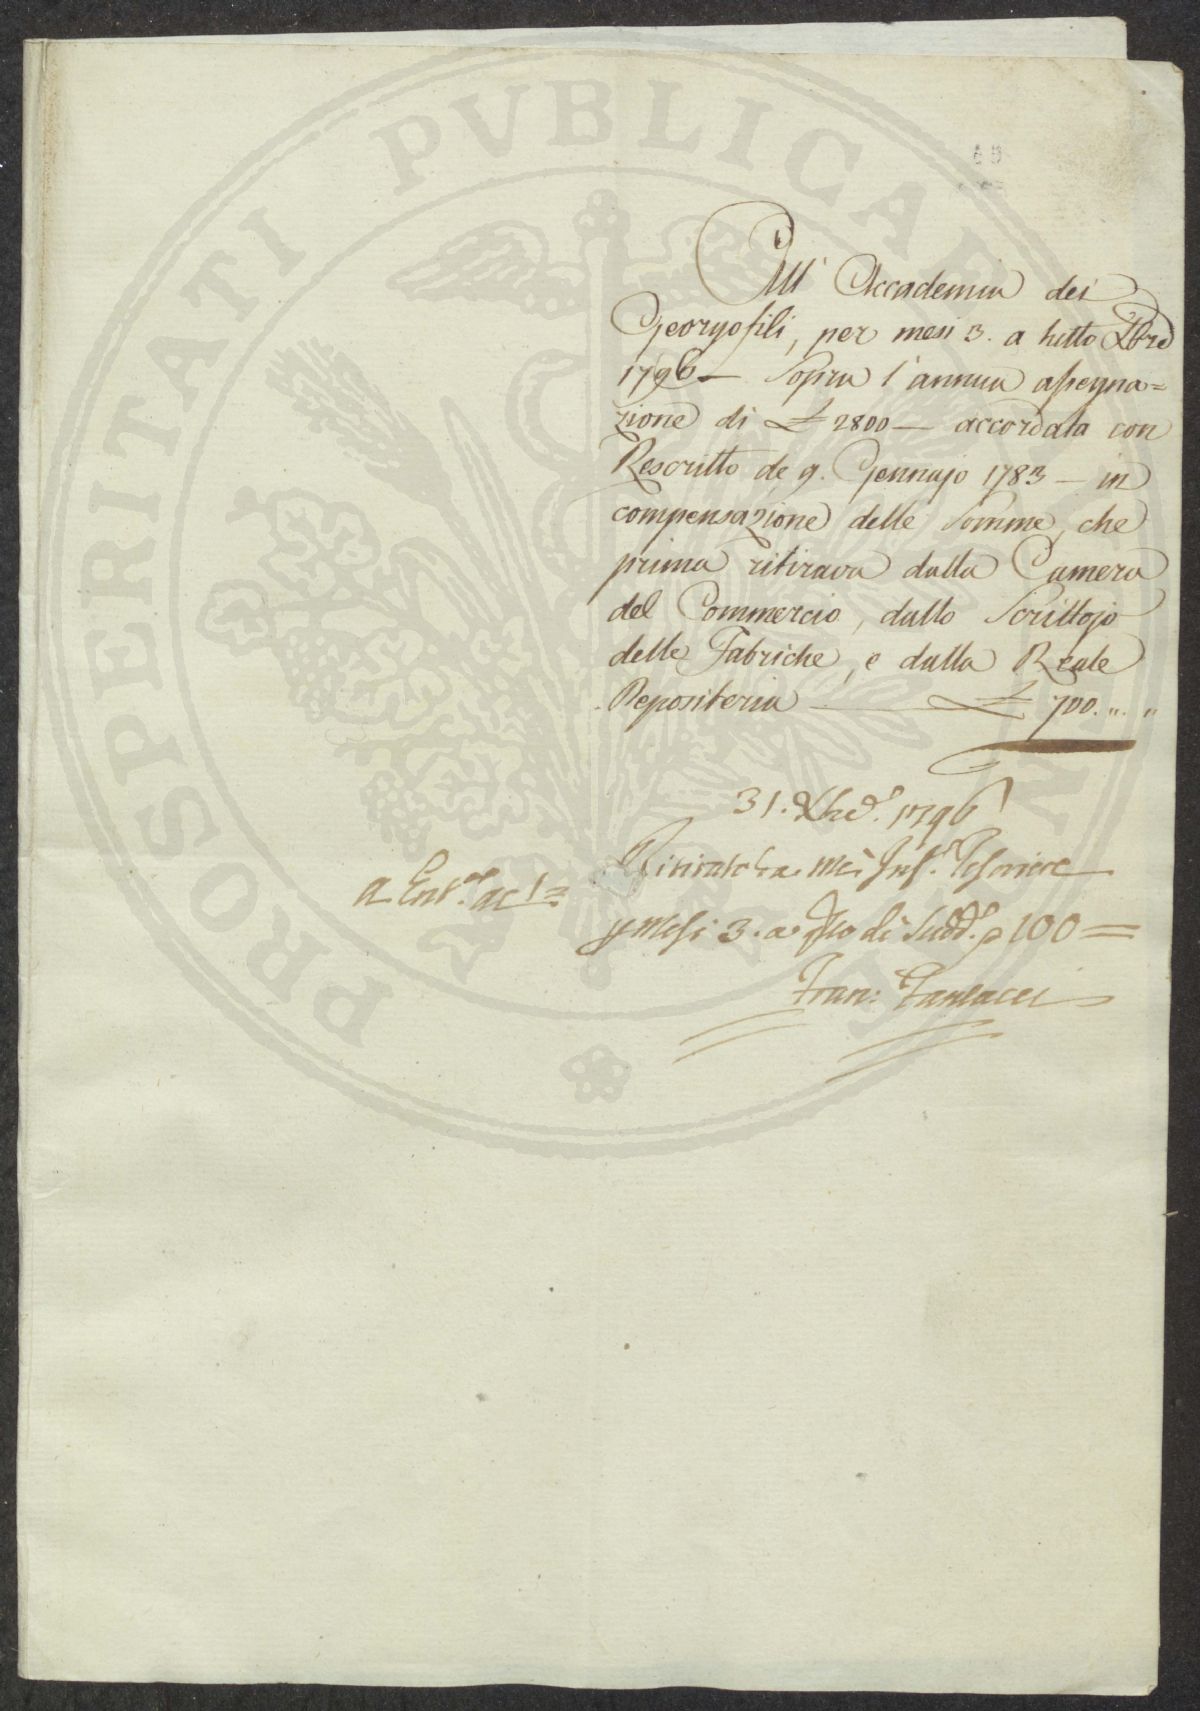 PROSPERITATI PVBLICAE
All' Accademia dei
Georgofili, per mesi 3. a tutto Xbre
1796 — Sopra l'annua assegna=
zione di £ 2800 — accordata con
Rescritto de 9. Gennajo 1783 — in
compensazione delle Somme, che
prima ritirava dalla Camera
del Commercio, dallo Scrittojo
delle Fabriche, e dalla Reale
Depositeria — £ 700. „. „
31. Xbre. 1796
a Entr.
Tesoriere
Mesi 3. a di Sudd. 100 =
Fran: